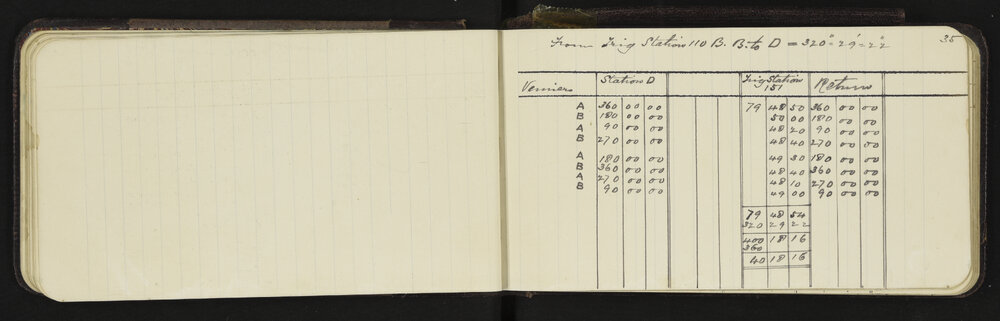 35
From Trig Station 110 B. B. to D = 320° = 29' = 22"
Verniers Station D Trig Station 151 Return
A 360 00 00 79 48 50 360 00 00
B 180 00 00 50 00 180 00 00
A 90 00 00 48 20 90 00 00
B 270 00 00 48 40 270 00 00
A 180 00 00 49 30 180 00 00
B 360 00 00 48 40 360 00 00
A 270 00 00 48 10 270 00 00
B 90 00 00 49 00 90 00 00
79 48 54
320 29 22
400 18 16
360
40 18 16